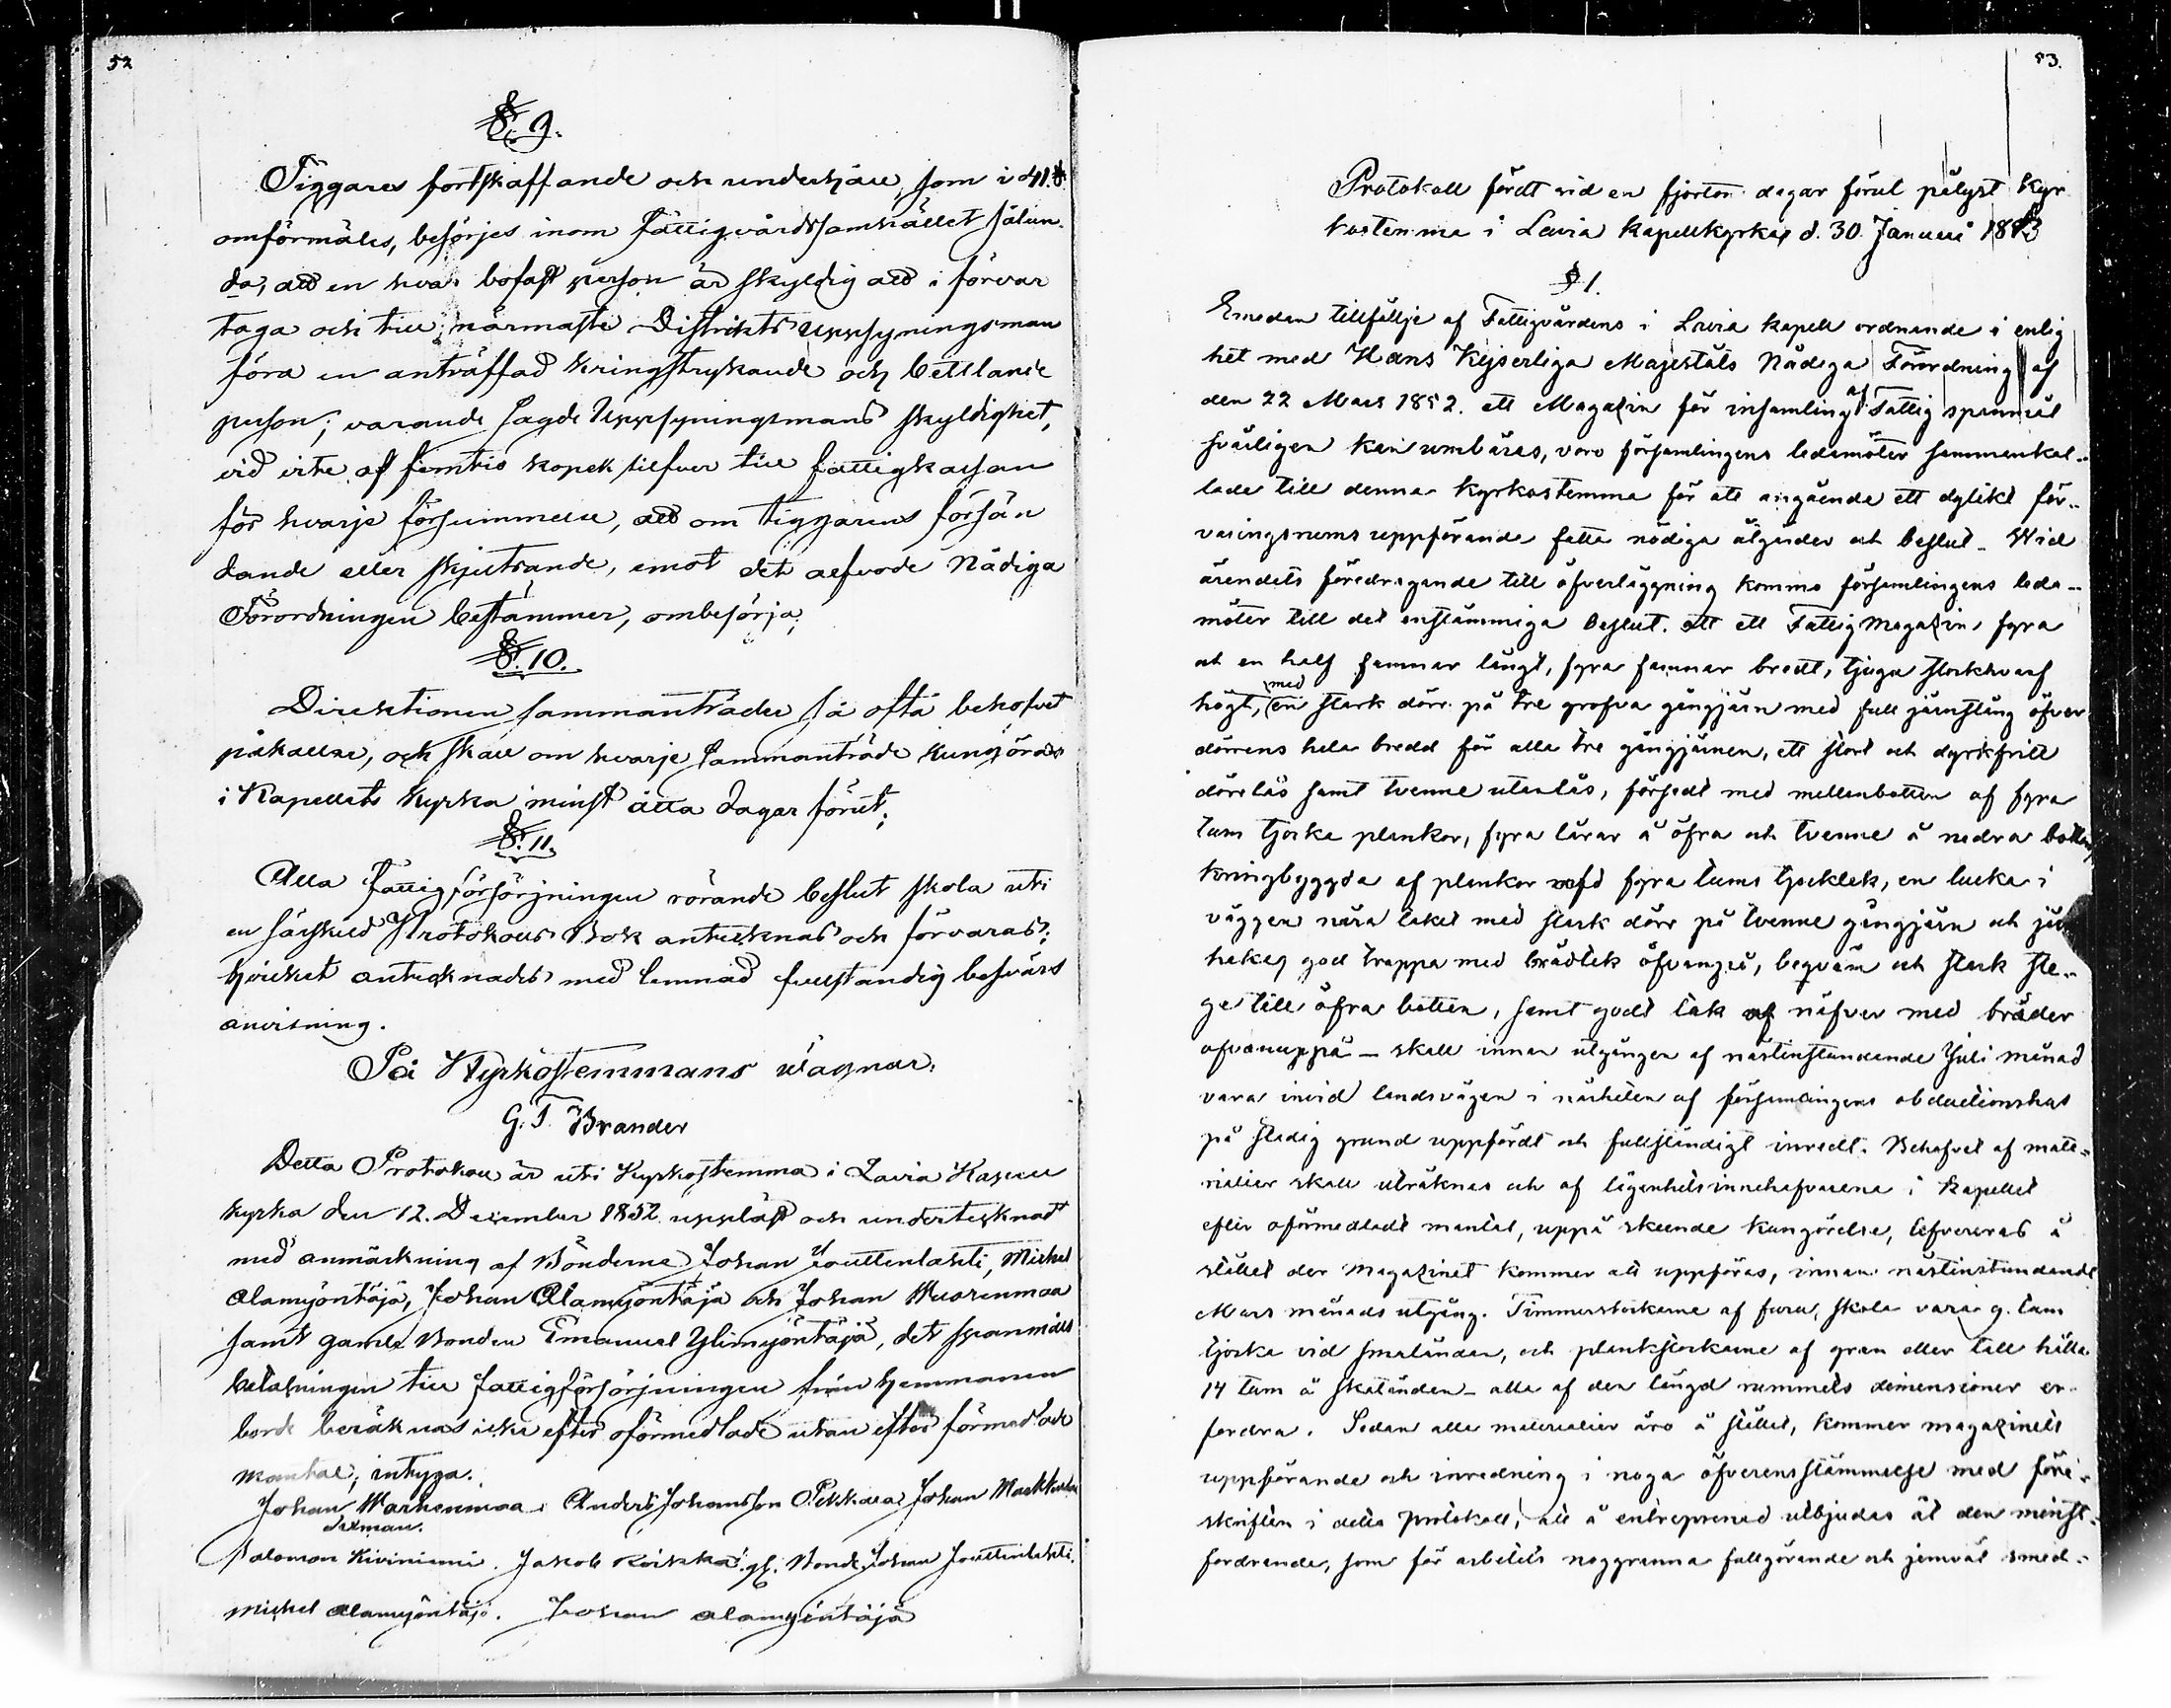 52
§. 9.
Tiggares fortskaffande och underhåll, som i 41.§.
omförmäles, besörjes inom fattigvårdssamhället sålun-
da, att en hvar bofast person är skyldig att i förvar
taga och till närmaste Distrikts uppsyningsman
föra en anträffad kringstrykande och bettlande
person; varande sagde Uppsyningsmans skyldighet,
vid vite af femtio kopek silfver till fattigkassan
för hvarje försummelse, att om tiggarens försän
dande eller skjutsande, emot det åefvode Nådiga
Förordningen bestämmer, ombesörja;
§. 10.
Direktionen sammanträder så ofta behofvet
påkallar, och skall om hvarje sammanträde kungöras
i Kapellets Kyrka minst åtta dagar förut;
§. 11.
Alla fattigförsörjningen rörande beslut skola uti
en särskild Protokolls Bok antecknas och förvaras;
hvilket antecknades med lemnad fullständig besvärs
anvisning.
På Kyrkostemmans vägnar:
G. T. Brander
Detta Protokoll är uti Kyrkostemma i Lavia Kapell
kyrka den 12. December 1852 uppläst och undertecknadt
med anmärkning af Bönderne Johan Jouttenlahti, Michel
Alamyöntäjä, Johan Alamyöntäjä och Johan Wuorenmaa
samt gamle Bonden Emanuel Ylimyöntäjä, det spanmåls
betalningen till fattigförsörjningen från hemmanen
borde beräknas icke efter oförmedlade utan efter förmedlade
mantal; intyga.
Johan Warhenmaa Anders Johansson Pekkala Johan
Sexman.
Salomon Kiviniemi. Jakob Koikka gl. Bonde. Johan Jouttenlahti.
Michel Alamyöntäjä. Johan Alamyöntäjä
53.
Protokoll fördt vid en fjorton dagar förut pålyst Kyr
kostemma i Lavia Kapellkyrka d. 30 Januari 1853
§ 1.
Emedan tillfölje af Fattigvårdens i Lavia kapell ordnande i enlig
het med Hans Kejserliga Majestäts Nådiga Förordning af
den 22 Mars 1852. ett Magazin för insamling af Fattig spannmål
svårligen kan umbäras, voro församlingens ledamöter sammankal-
lade till denna Kyrkostemma för att angående ett dylikt för-
varingsrums uppförande fatta nödiga åtgärder och beslut. Wid
ärendets föredragande till öfverläggning kommo församlingens leda-
möter till det enstämmiga beslut. att ett Fattig Magazin, fyra
och en half famnar långt, fyra famnar bredt, tjugu stockhvarf
högt, med en stark dörr på tre grofva gångjärn med full järnstång öfver
dörrens hela bredd för alla tre gångjärnen, ett stort och dyrkfritt
dörrlås samt tvenne utanlås, försedt med mellanbotten af fyra
tums tjocka plankor, fyra lårar å öfra och tvenne å nedra botten
kringbyggda af plankor med fyra tums tjocklek, en lucka i
väggen nära taket med stark dörr på tvenne gångjärn och järn
hakes god trappa med brädtek öfvanpå, beqväm och stark ste-
ge till öfra botten, samt godt tak af näfver med bräder
ofvanuppå - skall innan utgången af nästinstundande Juli månad
vara invid landsvägen i närheten af församlingens obductionshus
på stadig grund uppfördt och fullständigt inredt. Behofvet af mate-
rialier skall uträknas och af lägenhetsinnehafvarena i kapellet
efter oförmedladt mantal, uppå skeende kungörelse, lefvereras å
stället der Magazinet kommer att uppföras, innan nästinstundande
Mars månads utgång. Timmerstockarne af furu, skola vara 9. tum
tjocka vid smaländan, och plankstockarne af gran eller tall hålla
14 tum å skatänden - alla af den längd rummets dimensioner er-
fordra. Sedan alla materialier äro å stället, kommer magazinets
uppförande och inredning i noga öfverensstämmelse med före-
skriften i detta Protokoll, att å entreprenad utbjudas åt den minst-
fordrande, som för arbetets noggranna fullgörande och jemväl smed-